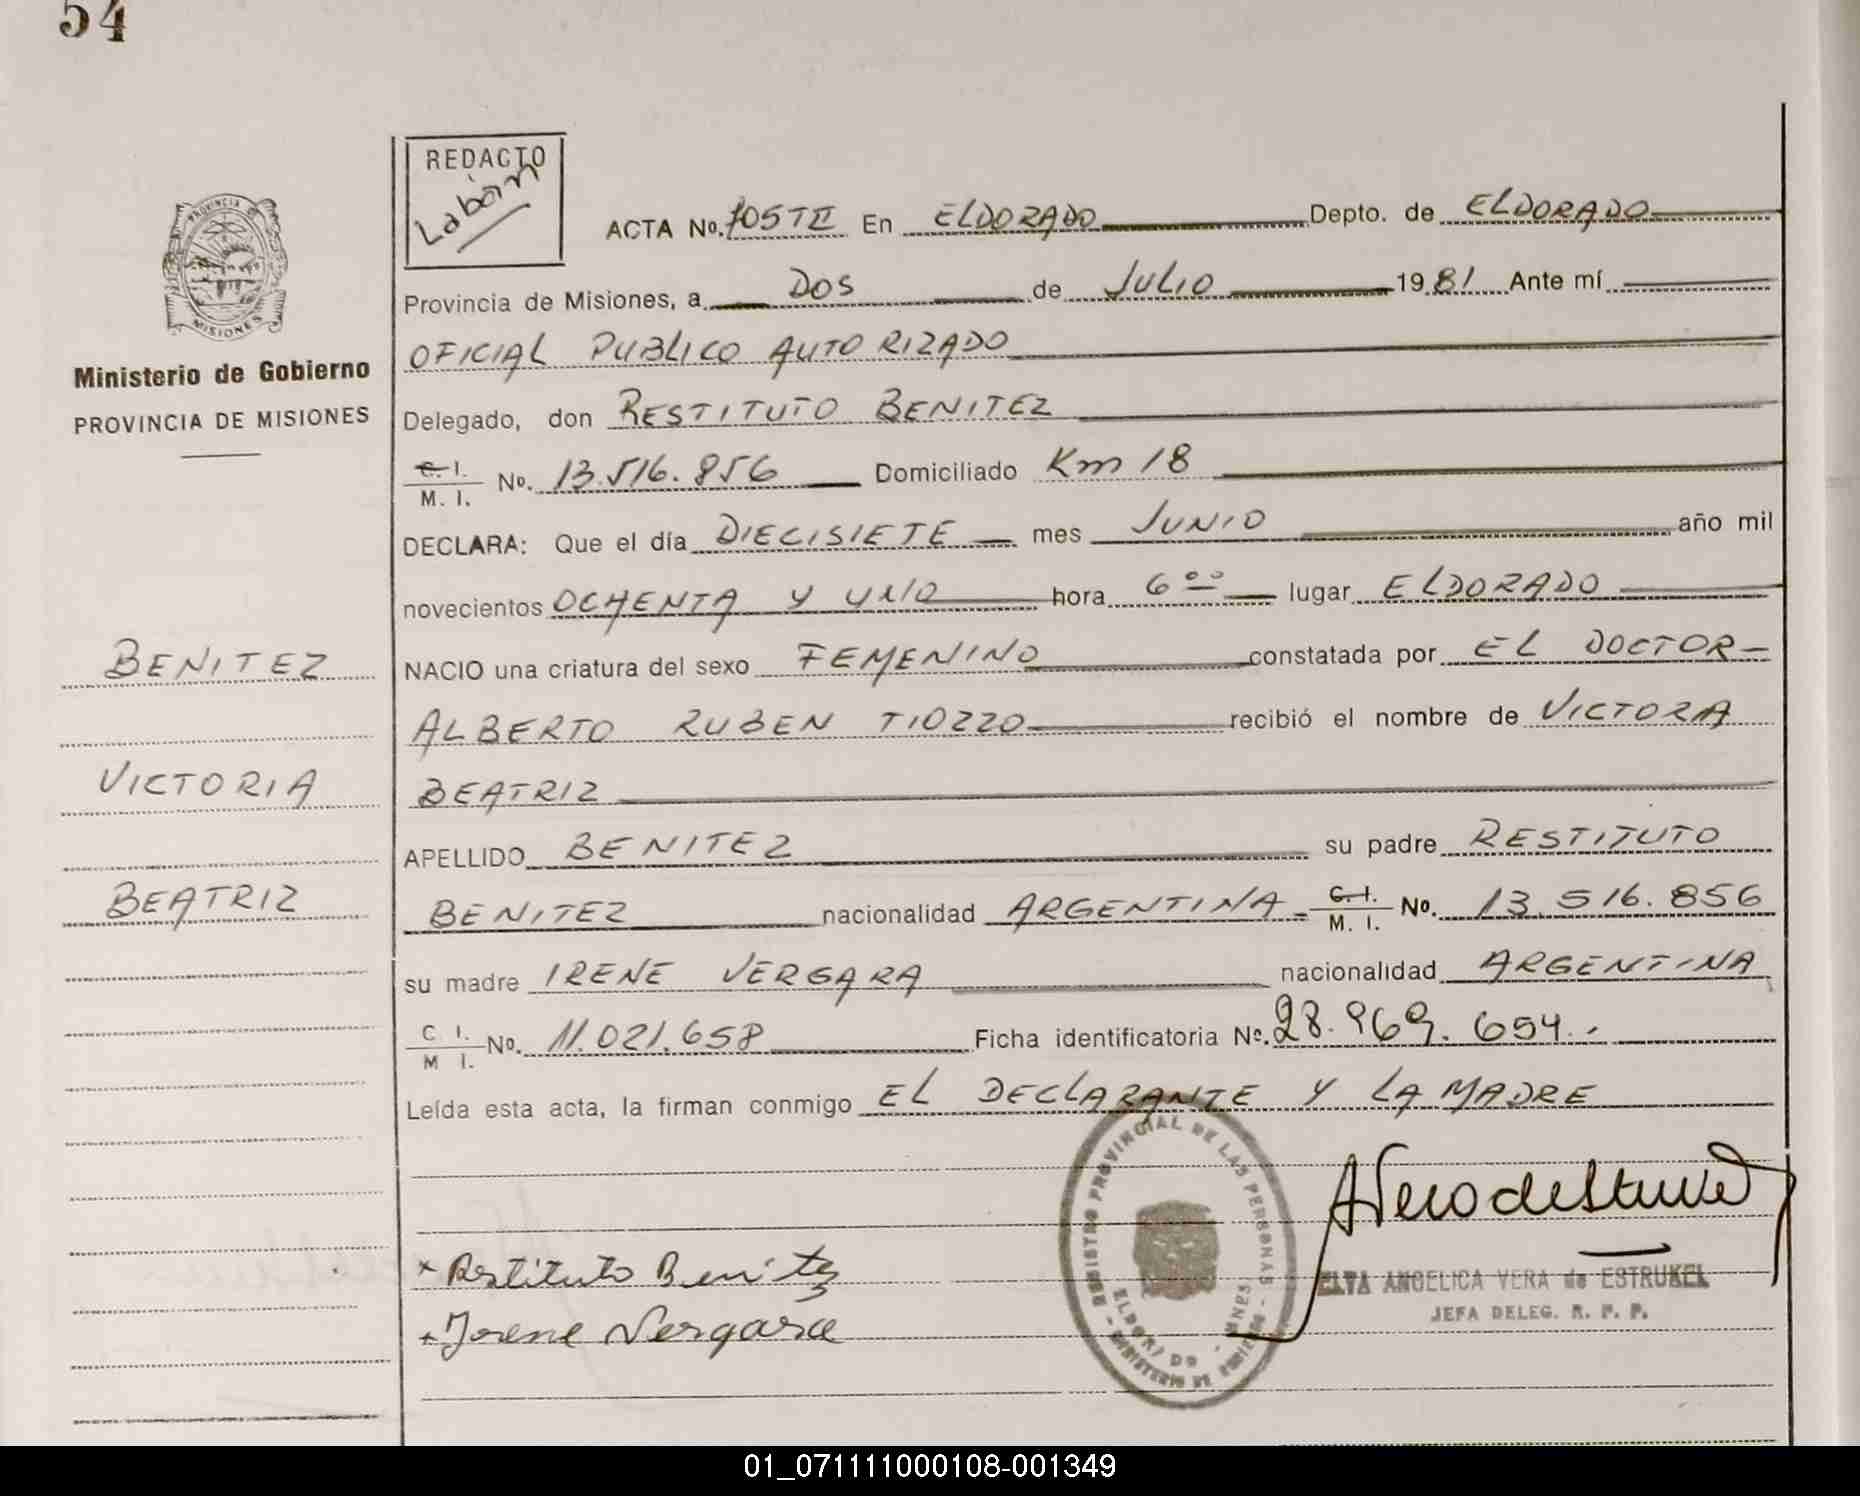 54
REDACTO
Labón
PROVINCIA DE
MISIONES
Ministerio de Gobierno
PROVINCIA DE MISIONES
ACTA No. 105 T II En ELDORADO Depto. de ELDORADO
Provincia de Misiones, a DOS de JULIO 1981 Ante mí
OFICIAL PUBLICO AUTORIZADO
Delegado, don RESTITUTO BENITEZ
C. I. / M. I. No. 13.516.856 Domiciliado Km 18
DECLARA: Que el día DIECISIETE mes JUNIO año mil
novecientos OCHENTA Y UNO hora 6 00 lugar ELDORADO
BENITEZ
NACIO una criatura del sexo FEMENINO constatada por EL DOCTOR
ALBERTO RUBEN TIOZZO recibió el nombre de VICTORA
VICTORIA
BEATRIZ
APELLIDO BENITEZ su padre RESTITUTO
BEATRIZ
BENITEZ nacionalidad ARGENTINA C. I. / M. I. No. 13.516.856
su madre IRENE VERGARA nacionalidad ARGENTINA
C I. / M I. No. 11.021.658 Ficha identificatoria No. 28.969.654.
Leída esta acta, la firman conmigo EL DECLARANTE Y LA MADRE
REGISTRO PROVINCIAL DE LAS PERSONAS
ELDORADO - MNES
MINISTERIO DE GOBIERNO
Restituto Benitez
Irene Vergara
ELVA ANGELICA VERA de ESTRUKEL
JEFA DELEG. R. P. P.
01_071111000108-001349